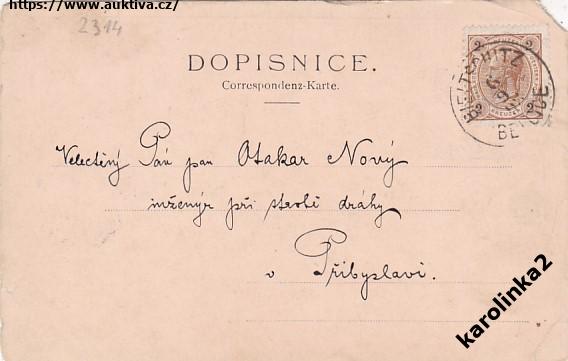 https://www.auktiva.cz/
2314
DOPISNICE.
Correspondenz-Karte.
2 2
2 2
KREUZER
Velectěný Pán pan Otakar Nový
inženýr při stavbě dráhy
v Přibyslavi.
karolinka2